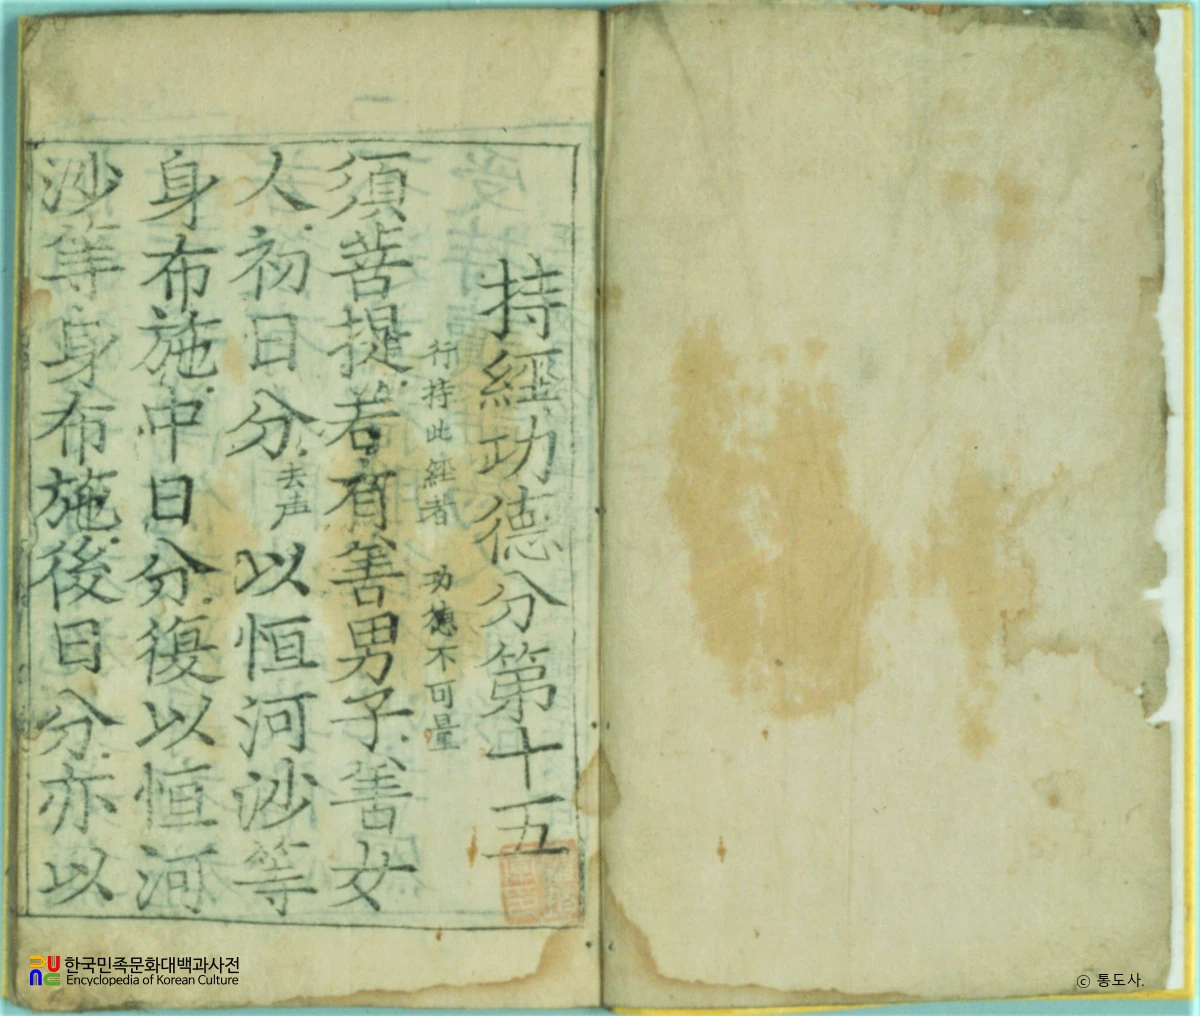 持經功德分第十五
行持此經者 功德不可量
須菩提若有善男子善女
人初日分去声以恒河沙等
身布施中日分復以恒河
沙等身布施後日分亦以
한국민족문화대백과사전
Encyclopedia of Korean Culture
ⓒ 통도사.